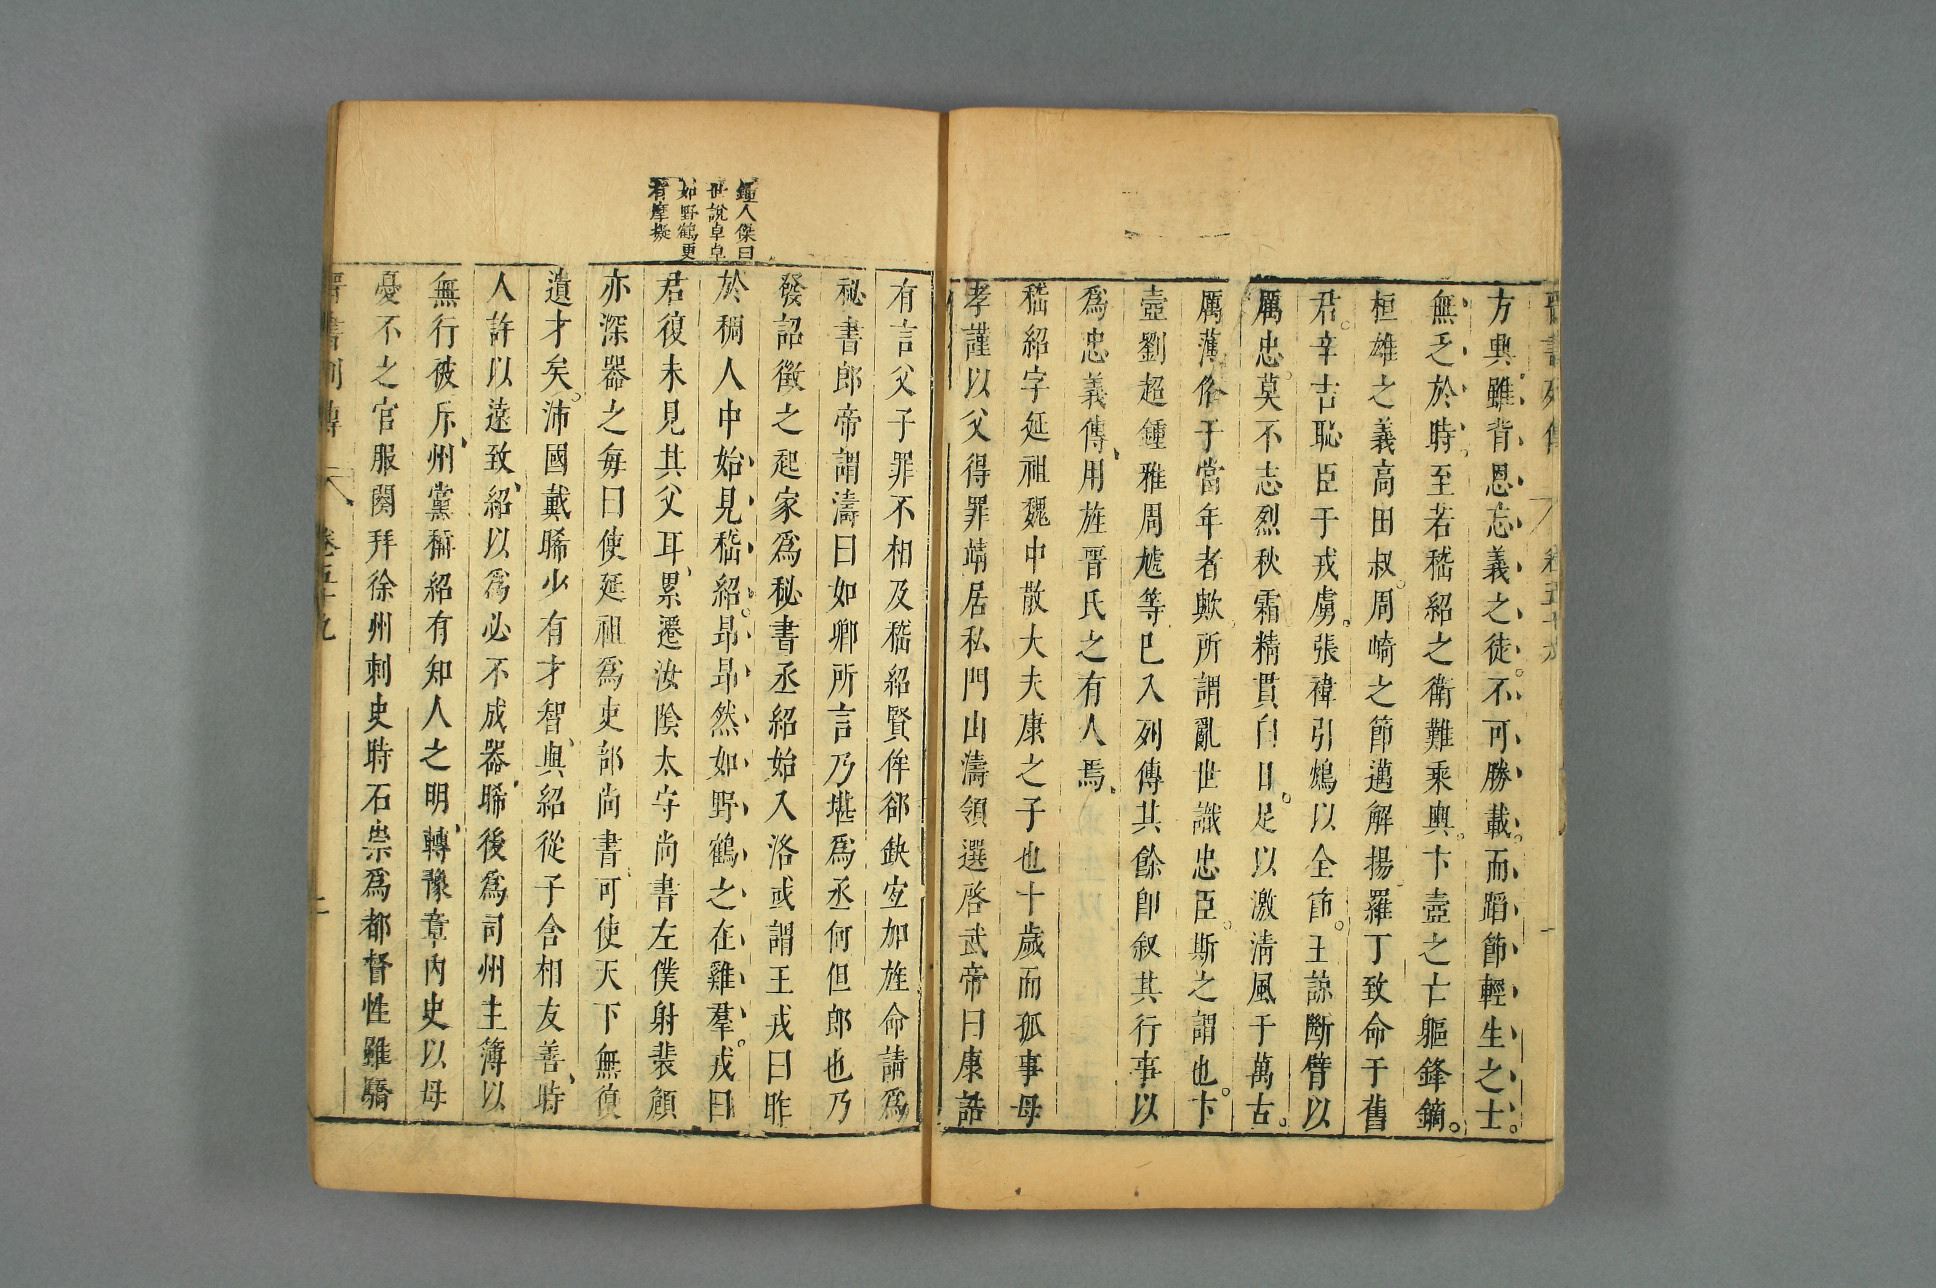 晉書列傳 卷五十九 一
方輿雖背恩忘義之徒不可勝載而蹈節輕生之士
無乏於時至若嵇紹之衛難乘輿卞壼之亡軀鋒鏑
桓雄之義高田叔周崎之節邁解揚羅丁致命于舊
君辛吉恥臣于戎虜張禕引鴆以全節王諒斷臂以
厲忠莫不志烈秋霜精貫白日足以激淸風于萬古
厲薄俗于當年者歟所謂亂世識忠臣斯之謂也卞
壼劉超鍾雅周虓等已入列傳其餘卽叙其行事以
爲忠義傳用旌晉氏之有人焉
嵇紹字延祖魏中散大夫康之子也十歲而孤事母
孝謹以父得罪靖居私門山濤領選啓武帝曰康誥
鍾人傑曰
世說卓卓
如野鶴更
有摩擬
有言父子罪不相及嵇紹賢侔郤缺宜加旌命請爲
秘書郎帝謂濤曰如卿所言乃堪爲丞何但郎也乃
發詔徵之起家爲秘書丞紹始入洛或謂王戎曰昨
於稠人中始見嵇紹昂昂然如野鶴之在雞羣戎曰
君復未見其父耳累遷汝陰太守尚書左僕射裴頠
亦深器之每曰使延祖爲吏部尚書可使天下無復
遺才矣沛國戴晞少有才智與紹從子含相友善時
人許以遠致紹以爲必不成器晞後爲司州主簿以
無行被斥州黨稱紹有知人之明轉豫章內史以母
憂不之官服闋拜徐州刺史時石崇爲都督性雖驕
晉書列傳 卷五十九 二